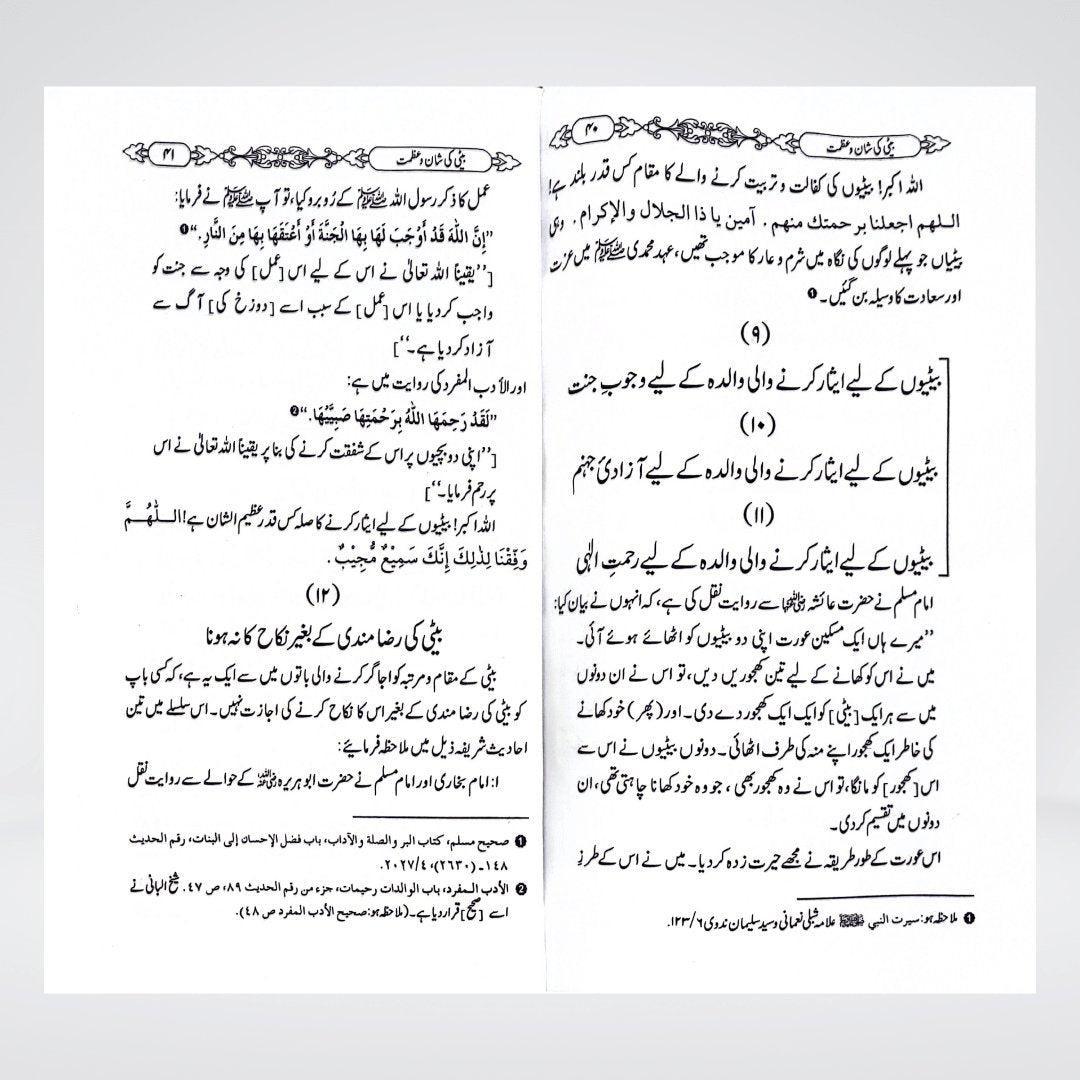 بیٹی کی شان و عظمت
۴۰
اللہ اکبر! بیٹیوں کی کفالت و تربیت کرنے والے کا مقام کس قدر بلند ہے!
اللهم اجعلنا برحمتك منهم. آمين يا ذا الجلال والإكرام. وہی
بیٹیاں جو پہلے لوگوں کی نگاہ میں شرم و عار کا موجب تھیں، عہد محمدی ﷺ میں عزت
اور سعادت کا وسیلہ بن گئیں۔ ❶
(۹)
بیٹیوں کے لیے ایثار کرنے والی والدہ کے لیے وجوبِ جنت
(۱۰)
بیٹیوں کے لیے ایثار کرنے والی والدہ کے لیے آزادیٔ جہنم
(۱۱)
بیٹیوں کے لیے ایثار کرنے والی والدہ کے لیے رحمتِ الٰہی
امام مسلم نے حضرت عائشہ رضی اللہ عنہا سے روایت نقل کی ہے، کہ انہوں نے بیان کیا:
”میرے ہاں ایک مسکین عورت اپنی دو بیٹیوں کو اٹھائے ہوئے آئی۔
میں نے اس کو کھانے کے لیے تین کھجوریں دیں، تو اس نے ان دونوں
میں سے ہر ایک [بیٹی] کو ایک ایک کھجور دے دی۔ اور (پھر) خود کھانے
کی خاطر ایک کھجور اپنے منہ کی طرف اٹھائی۔ دونوں بیٹیوں نے اس سے
اس [کھجور] کو مانگا، تو اس نے وہ کھجور بھی، جو وہ خود کھانا چاہتی تھی، ان
دونوں میں تقسیم کر دی۔
اس عورت کے طور طریقہ نے مجھے حیرت زدہ کر دیا۔ میں نے اس کے طرزِ
❶ ملاحظہ ہو: سيرت النبي ﷺ علامہ شبلی نعمانی و سید سلیمان ندوی ۶/۱۲۳.
بیٹی کی شان و عظمت
۴۱
عمل کا ذکر رسول اللہ ﷺ کے رُو برو کیا، تو آپ ﷺ نے فرمایا:
”إِنَّ اللّٰهَ قَدْ أَوْجَبَ لَهَا بِهَا الْجَنَّةَ أَوْ أَعْتَقَهَا بِهَا مِنَ النَّارِ.“ ❶
[”یقیناً اللہ تعالیٰ نے اس کے لیے اس [عمل] کی وجہ سے جنت کو
واجب کر دیا یا اس [عمل] کے سبب اسے [دوزخ کی] آگ سے
آزاد کر دیا ہے۔“]
اور الأدب المفرد کی روایت میں ہے:
”لَقَدْ رَحِمَهَا اللّٰهُ بِرَحْمَتِهَا صَبِيَّيْهَا.“ ❷
[”اپنی دو بچیوں پر اس کے شفقت کرنے کی بنا پر یقیناً اللہ تعالیٰ نے اس
پر رحم فرمایا۔“]
اللہ اکبر! بیٹیوں کے لیے ایثار کرنے کا صلہ کس قدر عظیم الشان ہے! اللّٰهُمَّ
وَفِّقْنَا لِذٰلِكَ إِنَّكَ سَمِيْعٌ مُّجِيْبٌ.
(۱۲)
بیٹی کی رضا مندی کے بغیر نکاح کا نہ ہونا
بیٹی کے مقام و مرتبہ کو اجاگر کرنے والی باتوں میں سے ایک یہ ہے، کہ کسی باپ
کو بیٹی کی رضا مندی کے بغیر اس کا نکاح کرنے کی اجازت نہیں۔ اس سلسلے میں تین
احادیث شریفہ ذیل میں ملاحظہ فرمائیے:
۱: امام بخاری اور امام مسلم نے حضرت ابو ہریرہ رضی اللہ عنہ کے حوالے سے روایت نقل
❶ صحيح مسلم، كتاب البر والصلة والآداب، باب فضل الإحسان إلى البنات، رقم الحديث
۱۴۸۔ (۲۶۳۰)، ۴/۲۰۲۷.
❷ الأدب المفرد، باب الوالدات رحيمات، جزء من رقم الحديث ۸۹، ص ۴۷. شیخ البانی نے
اسے [صحیح] قرار دیا ہے۔ (ملاحظہ ہو: صحيح الأدب المفرد ص ۴۸).